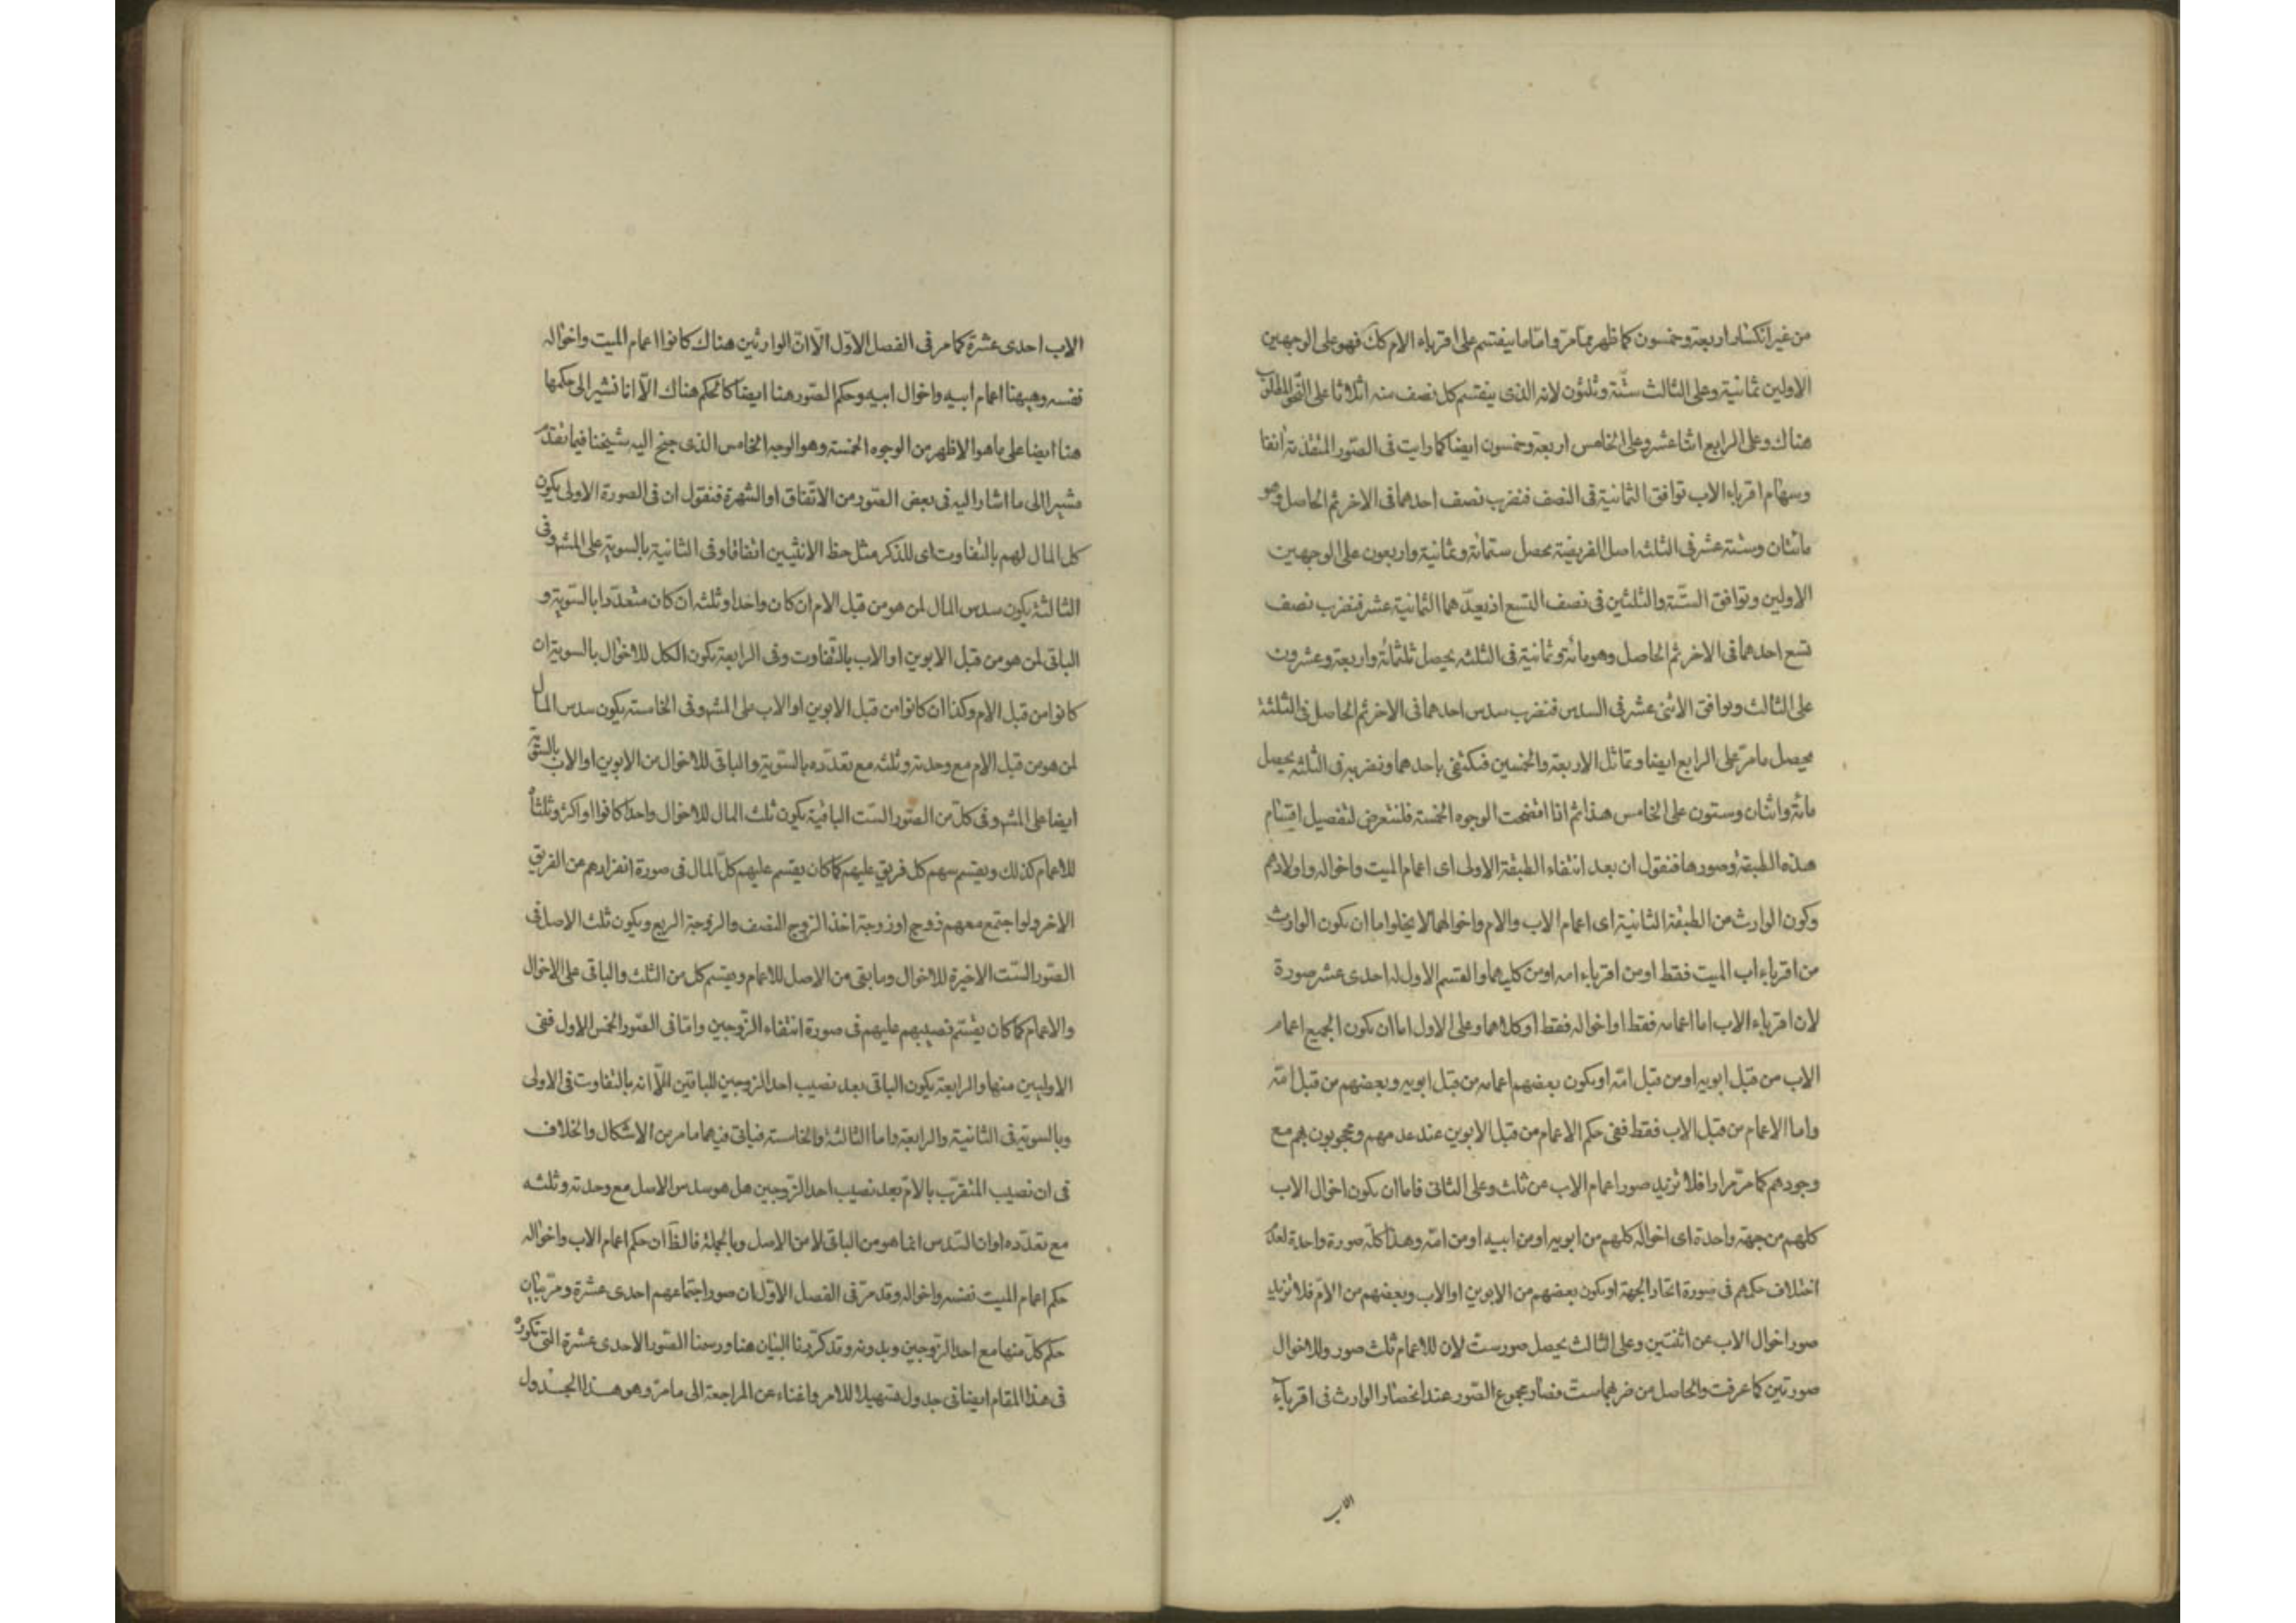 من غير انكسار اربعة وخمسون كما ظهر مما مرّ واما ما ينقسم على اقرباء الام كك فهو على الوجهين
الاولين ثمانية وعلى الثالث ستّة وثلثون لانه الذى ينقسم كل نصف منه اثلاثا على النحو المطلوب
هناك وعلى الرابع اثنا عشر وعلى الخامس اربعة وخمسون ايضا كما رايت فى الصّور المتقدمة انفا
وسهام اقرباء الاب توافق الثمانية فى النصف فنضرب نصف احدهما فى الاخر ثم الحاصل وهو
مائتان وستة عشر فى الثلثه اصل الفريضة يحصل ستمائة وثمانية واربعون على الوجهين
الاولين وتوافق الستّة والثلثين فى نصف التسع اذ يعدّهما الثمانية عشر فنضرب نصف
تسع احدهما فى الاخر ثم الحاصل وهو مائة وثمانية فى الثلثه يحصل ثلثمائة واربعة وعشرون
على الثالث وتوافق الاثنى عشر فى السدس فنضرب سدس احدهما فى الاخر ثم الحاصل فى الثلثة
يحصل ما مرّ على الرابع ايضا وتماثل الاربعة والخمسين فنكتفى باحدهما ونضربه فى الثلثه يحصل
مائة واثنان وستون على الخامس هذا ثم اذا اتضحت الوجوه الخمسة فلنتعرض لتفصيل اقسام
هذه الطبقة وصورها فنقول ان بعد انتفاء الطبقة الاولى اى اعمام الميت واخواله واولادهم
وكون الوارث من الطبقة الثانية اى اعمام الاب والام واخوالهما لا يخلوا اما ان يكون الوارث
من اقرباء اب الميت فقط او من اقرباء امه او من كليهما والقسم الاول له احدى عشر صورة
لان اقرباء الاب اما اعمامه فقط او اخواله فقط او كلاهما وعلى الاول اما ان يكون الجميع اعمام
الاب من قبل ابويه او من قبل امّه او يكون بعضهم اعمامه من قبل ابويه وبعضهم من قبل امّه
واما الاعمام من قبل الاب فقط ففى حكم الاعمام من قبل الابوين عند عدمهم ومحجوبون بهم مع
وجودهم كما مرّ مرارا فلا تزيد صور اعمام الاب عن ثلث وعلى الثانى فاما ان يكون اخوال الاب
كلهم من جهة واحدة اى اخواله كلهم من ابويه او من ابيه او من امّه وهذا كلّه صورة واحدة لعدم
اختلاف حكمهم فى صورة اتحاد الجهة او يكون بعضهم من الابوين او الاب وبعضهم من الامّ فلا تزيد
صور اخوال الاب عن اثنتين وعلى الثالث يحصل صور ستّ لان للاعمام ثلث صور وللاخوال
صورتين كما عرفت والحاصل من ضربهما ستّ فصار مجموع الصّور عند انحصار الوارث فى اقرباء
الاب
الاب احدى عشرة كما مر فى الفصل الاوّل الّا انّ الوارثين هناك كانوا اعمام الميت واخواله
نفسه وهيهنا اعمام ابيه واخوال ابيه وحكم الصّور هنا ايضا كالحكم هناك الّا انا نشير الى حكمها
هنا ايضا على ما هو الاظهر من الوجوه الخمسة وهو الوجه الخامس الذى جنح اليه شيخنا فيما تقدّم
مشيرا الى ما اشار اليه فى بعض الصّور من الاتّفاق او الشهرة فنقول ان فى الصورة الاولى يكون
كل المال لهم بالتفاوت اى للذكر مثل حظ الانثيين اتفاقا وفى الثانية بالسوية على المشه وفى
الثالثة يكون سدس المال لمن هو من قبل الام ان كان واحدا وثلثه ان كان متعدّدا بالسّوية و
الباقى لمن هو من قبل الابوين او الاب بالتفاوت وفى الرابعة يكون الكل للاخوال بالسوية ان
كانوا من قبل الام وكذا ان كانوا من قبل الابوين او الاب على المشه وفى الخامسة يكون سدس المال
لمن هو من قبل الام مع وحدته وثلثه مع تعدّده بالسّوية والباقى للاخوال من الابوين او الاب بالسّوية
ايضا على المشه وفى كلّ من الصّور السّت الباقية يكون ثلث المال للاخوال واحدا كانوا او اكثر وثلثاه
للاعمام كذلك ويقسم سهم كل فريق عليهم كما كان يقسم عليهم كلّ المال فى صورة انفرادهم من الفريق
الاخر ولو اجتمع معهم زوج او زوجة اخذ الزوج النصف والزوجة الربع ويكون ثلث الاصل فى
الصّور السّت الاخيرة للاخوال وما بقى من الاصل للاعمام ويقسم كل من الثلث والباقى على الاخوال
والاعمام كما كان يقسّم نصيبهم عليهم فى صورة انتفاء الزّوجين وامّا فى الصّور الخمس الاول ففى
الاوليين منها والرابعة يكون الباقى بعد نصيب احد الزوجين للباقين الّا انه بالتفاوت فى الاولى
وبالسوية فى الثانية والرابعة واما الثالثة والخامسة فياتى فيهما ما مر من الاشكال والخلاف
فى ان نصيب المتقرّب بالامّ بعد نصيب احد الزّوجين هل هو سدس الاصل مع وحدته وثلثه
مع تعدّده او ان السّدس انما هو من الباقى لا من الاصل وبالجملة فالظّ ان حكم اعمام الاب واخواله
حكم اعمام الميت نفسه واخواله وقد مرّ فى الفصل الاوّل ان صور اجتماعهم احدى عشرة ومرّ بيان
حكم كلّ منها مع احد الزّوجين وبدونه وقد كرّرنا البيان هنا ورسمنا الصّور الاحدى عشرة التى تكون
فى هذا المقام ايضا فى جدول تسهيلا للامر واغناء عن المراجعة الى ما مرّ وهو هذا الجدول